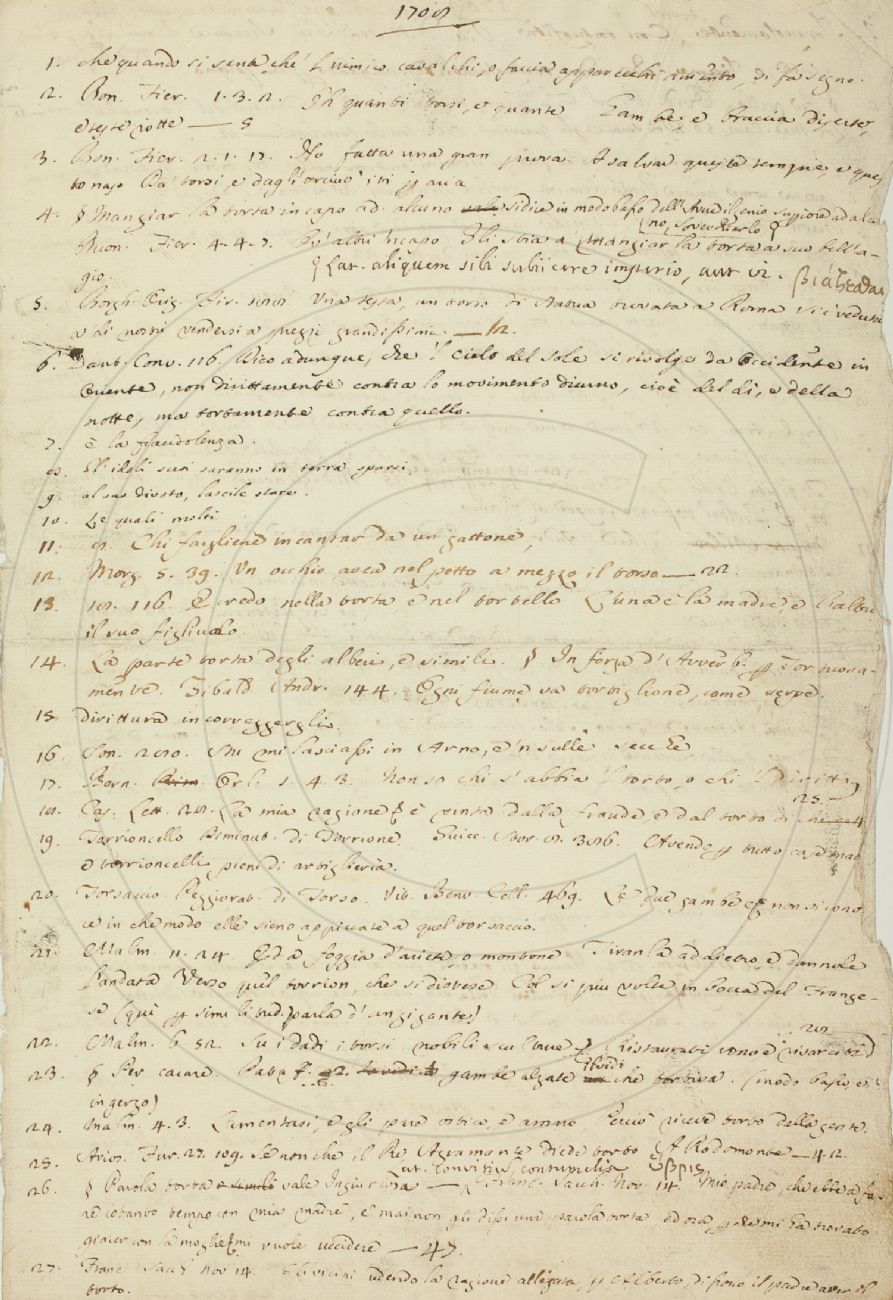 1708
1. che quando si senta che 'l nimico cavalchi, o faccia apparecchiamento, si fa segno.
2. Bon. Fier. 1. 3. 2. Oh quanti torsi, e quante Gambe, e braccia diserte,
e teste rotte — 5
3. Bon. Fier. 2. 1. 17. Ho fatta una gran prova A salvar queste tempie, e questo
to naso Da' torsi, e dagli orciuoli
4. § Mangiar la torta in capo ad alcuno si dice in modo basso dell' Aver il genio superiore ad alcuno
no, Soverchiarlo
Buon. Fier. 4. 4. 7. Ch' altri 'n capo Gli stia a mangiar la torta a suo bell' a-
gio. § Lat. aliquem sibi subiicere imperio, aut vi.
5. Borgh. Orig. Fir. Una testa, un torso di statua trovata a Roma si è veduta
a dì nostri vendersi a prezzi grandissimi — 12.
6. Dant. Conv. 116. Dico adunque, che 'l cielo del sole si rivolge da Occidente in
Oriente, non dirittamente contra lo movimento diurno, cioè del dì, e della
notte, ma tortamente contra quello.
7. è la fraudolenza.
8. Gl' idoli suoi saranno in terra sparsi,
9. al suo divoto, lascile stare.
10. Le quali molti
11. Chi fagliene incantar da un gattone,
12. Morg. 5. 39. Un occhio avea nel petto a mezzo il torso — 22.
13. 18. 116. Credo nella torta e nel tortello L'una è la madre e l'altro
il suo figliuolo.
14. La parte torta degli alberi, e simili. § In forza d' Avverb. Tortuosa-
mente. Tibald. Andr. 144. Ogni fiume va torto
15. dirittura in correggergli.
16. Son. 280. Mi lasciassi in Arno, e 'n sulle secche,
17. Bern. Orl. 1. 4. 3. Non so chi s' abbia 'l torto, o chi 'l diritto,
25. —
18. Cas. Lett. 28. La mia ragione è vinta dalla fraude, e dal torto di
19. Torrioncello Diminut. di Torrione. Guicc. Stor. Avendo per tutto casematte
e torrioncelli pieni di artiglieria.
20. Torsaccio Peggiorat. di Torso. Vit. Benv. Cell. 469. Le due gambe non si cono-
ce in che modo elle sieno appiccate a quel torsaccio.
21. Malm. 11. 24. Ed a foggia d'ariete, o montone Tiranla addietro, e dannole
l'andata Verso quel torrion, che si dicesse Col si più volte in bocca del Franze-
se (qui per similitud. parla d' un gigante)
22. Malm. 6. 52. Su i dadi i torsi nobili scultura Ristaurati sono e risarciti
23. § Per cacare. Pataff. 2. gambe alzate che tortiva. (modo basso, e
in gerzo)
24. Malm. 4. 3. Lamentasi, e gli pare ostica, e anno Ceccio riceve torto dalla gente.
25. Arios. Fur. 27. 109. Se non che il Re Agramante diede torto A Rodomonte — 42.
26. § Parola torta vale Ingiuriosa — Lat. convitium, contumelia ὕβρις Franc. Sacch. Nov. 14. Mio padre, che ebbe a fa-
re cotanto tempo con mia madre, e mai non gli dissi una parola torta, ed ora, perché mi ha trovato
giacer con la moglie mi vuole uccidere — 47.
27. Franc. Sacch. nov. 14. Gli vicini udendo la ragione allegata, per Alberto, dissono il padre aver il
torto.